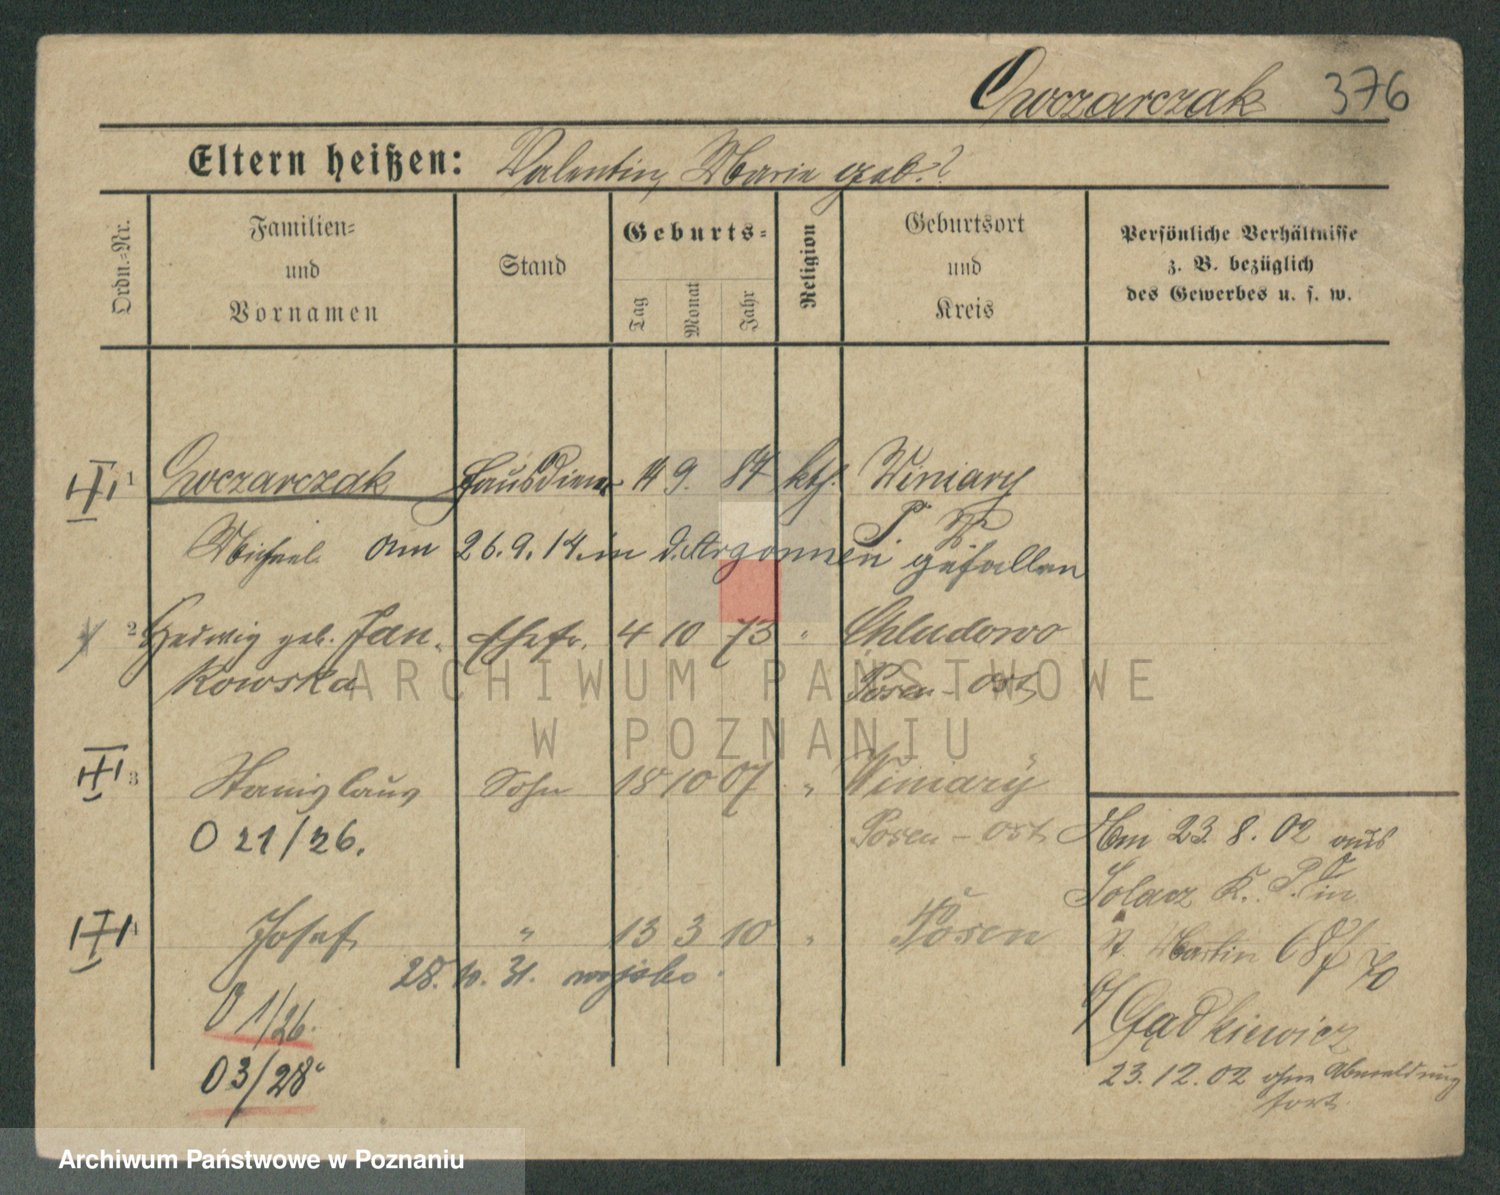 Owczarczak 376
Eltern heißen: Valentin, Marie geb. ?
Ordn.-Nr.
Familien-
und
Vornamen
Stand
Geburts-
Tag
Monat
Jahr
Religion
Geburtsort
und
Kreis
Persönliche Verhältnisse
z. B. bezüglich
des Gewerbes u. s. w.
1 Owczarczak Hausdiener 14 9. 87 kth. Winiary
Michael am 26.9.14. in d. Argonnen gefallen
2 Hedwig geb. Jan- Ehefr. 4 10 73 " Chludowo
kowska Posen-Ost
3 Stanislaus Sohn 18 10 07 " Winiary
O 21/26. Posen-Ost
Josef " 13 3 10 " Posen
28.10.31. wojsko.
O 1/26.
O 3/28
Am 23. 8. 02 aus
Solacz K. P. in
St. Martin 68
b/ Gądkiewicz
23.12.02 ohne Abmeldung
fort.
ARCHIWUM PAŃSTWOWE
W POZNANIU
Archiwum Państwowe w Poznaniu